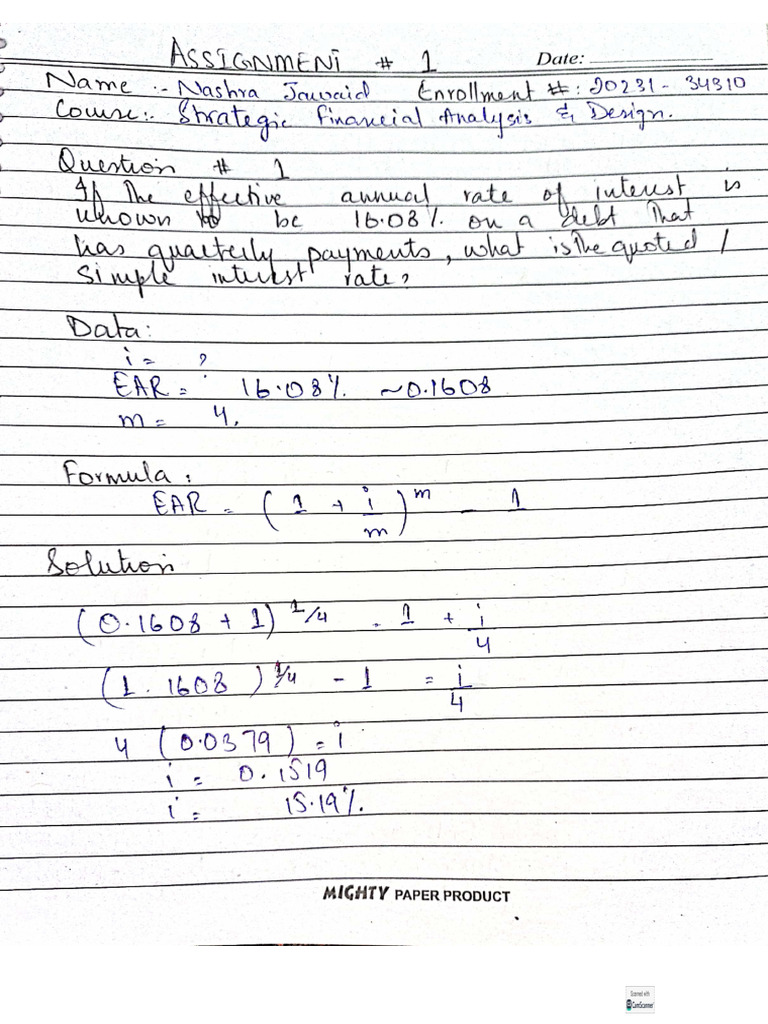 ASSIGNMENT # 1 Date:
Name :- Nashra Jawaid Enrollment #: 20231-34310
Course:- Strategic Financial Analysis & Design.
Question # 1
If The effective annual rate of interest is
known to be 16.08% on a debt That
has quarterly payments, what is the quoted /
simple interest rate?
Data:
i = ?
EAR = 16.08% ~0.1608
m = 4.
Formula:
EAR = (1 + i/m)^m - 1
Solution
(0.1608 + 1)^1/4 = 1 + i/4
(1.1608)^1/4 - 1 = i/4
4 (0.0379) = i
i = 0.1519
i = 15.19%.
MIGHTY PAPER PRODUCT
Scanned with
CamScanner